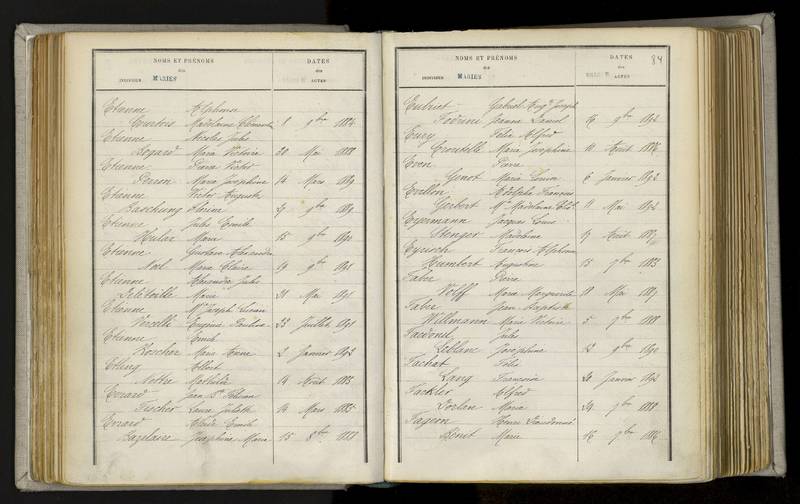 NOMS ET PRÉNOMS DATES
des des
INDIVIDUS MARIÉS ACTES
Etienne Alphonse
Courtois Madeleine Clémence 8 9bre 1884
Etienne Nicolas Jules
Bogard Marie Victoire 20 Mai 1888
Etienne Pierre Victor
Perron Marie Joséphine 14 Mars 1889
Etienne Victor Auguste
Baschung Florine 7 9bre 1889
Etienne Jules Emile
Hular Marie 15 9bre 1890
Etienne Gustave Alexandre
Noel Marie Claire 19 9bre 1891
Etienne Alexandre Jules
Marie 21 Mai 1891
Etienne Mie Joseph Lucien
Eugénie Pauline 23 Juillet 1891
Etienne Emile
Roscher Marie Anne 2 Janvier 1892
Etling Albert
Mathilde 14 Août 1883
Evrard Jean Bte
Fischer Laure Juliette 14 Mars 1885
Evrard Emile
Bazelaire Joséphine Marie 15 8bre 1888
84
NOMS ET PRÉNOMS DATES
des des
INDIVIDUS MARIÉS ACTES
Eubriet Gabriel Augte Joseph
Jeanne 16 9bre 1892
Eury Félix Alfred
Croutelle Marie Joséphine 11 Août 1886
Even Pierre
Genot Marie Louise 6 Janvier 1892
Evallon Adolphe François
Gerbert Mie Madeleine 11 Mai 1892
Eyermann Jacques Louis
Stenger Madeleine 19 Août 1887
Eyrisch François Alphonse
Humbert Augustine 15 7bre 1883
Fabre Pierre
Wolff Marie Marguerite 18 Mai 1887
Fabre Jean Baptiste
Willmann Marie Victoire 5 9bre 1888
Jules
Leblanc Joséphine 12 9bre 1890
Fachat Félix
Lang Françoise 20 Janvier 1892
Fackler Alfred
Dorlan Marie 29 7bre 1888
Fageon Henri
Benit Marie 16 9bre 1886